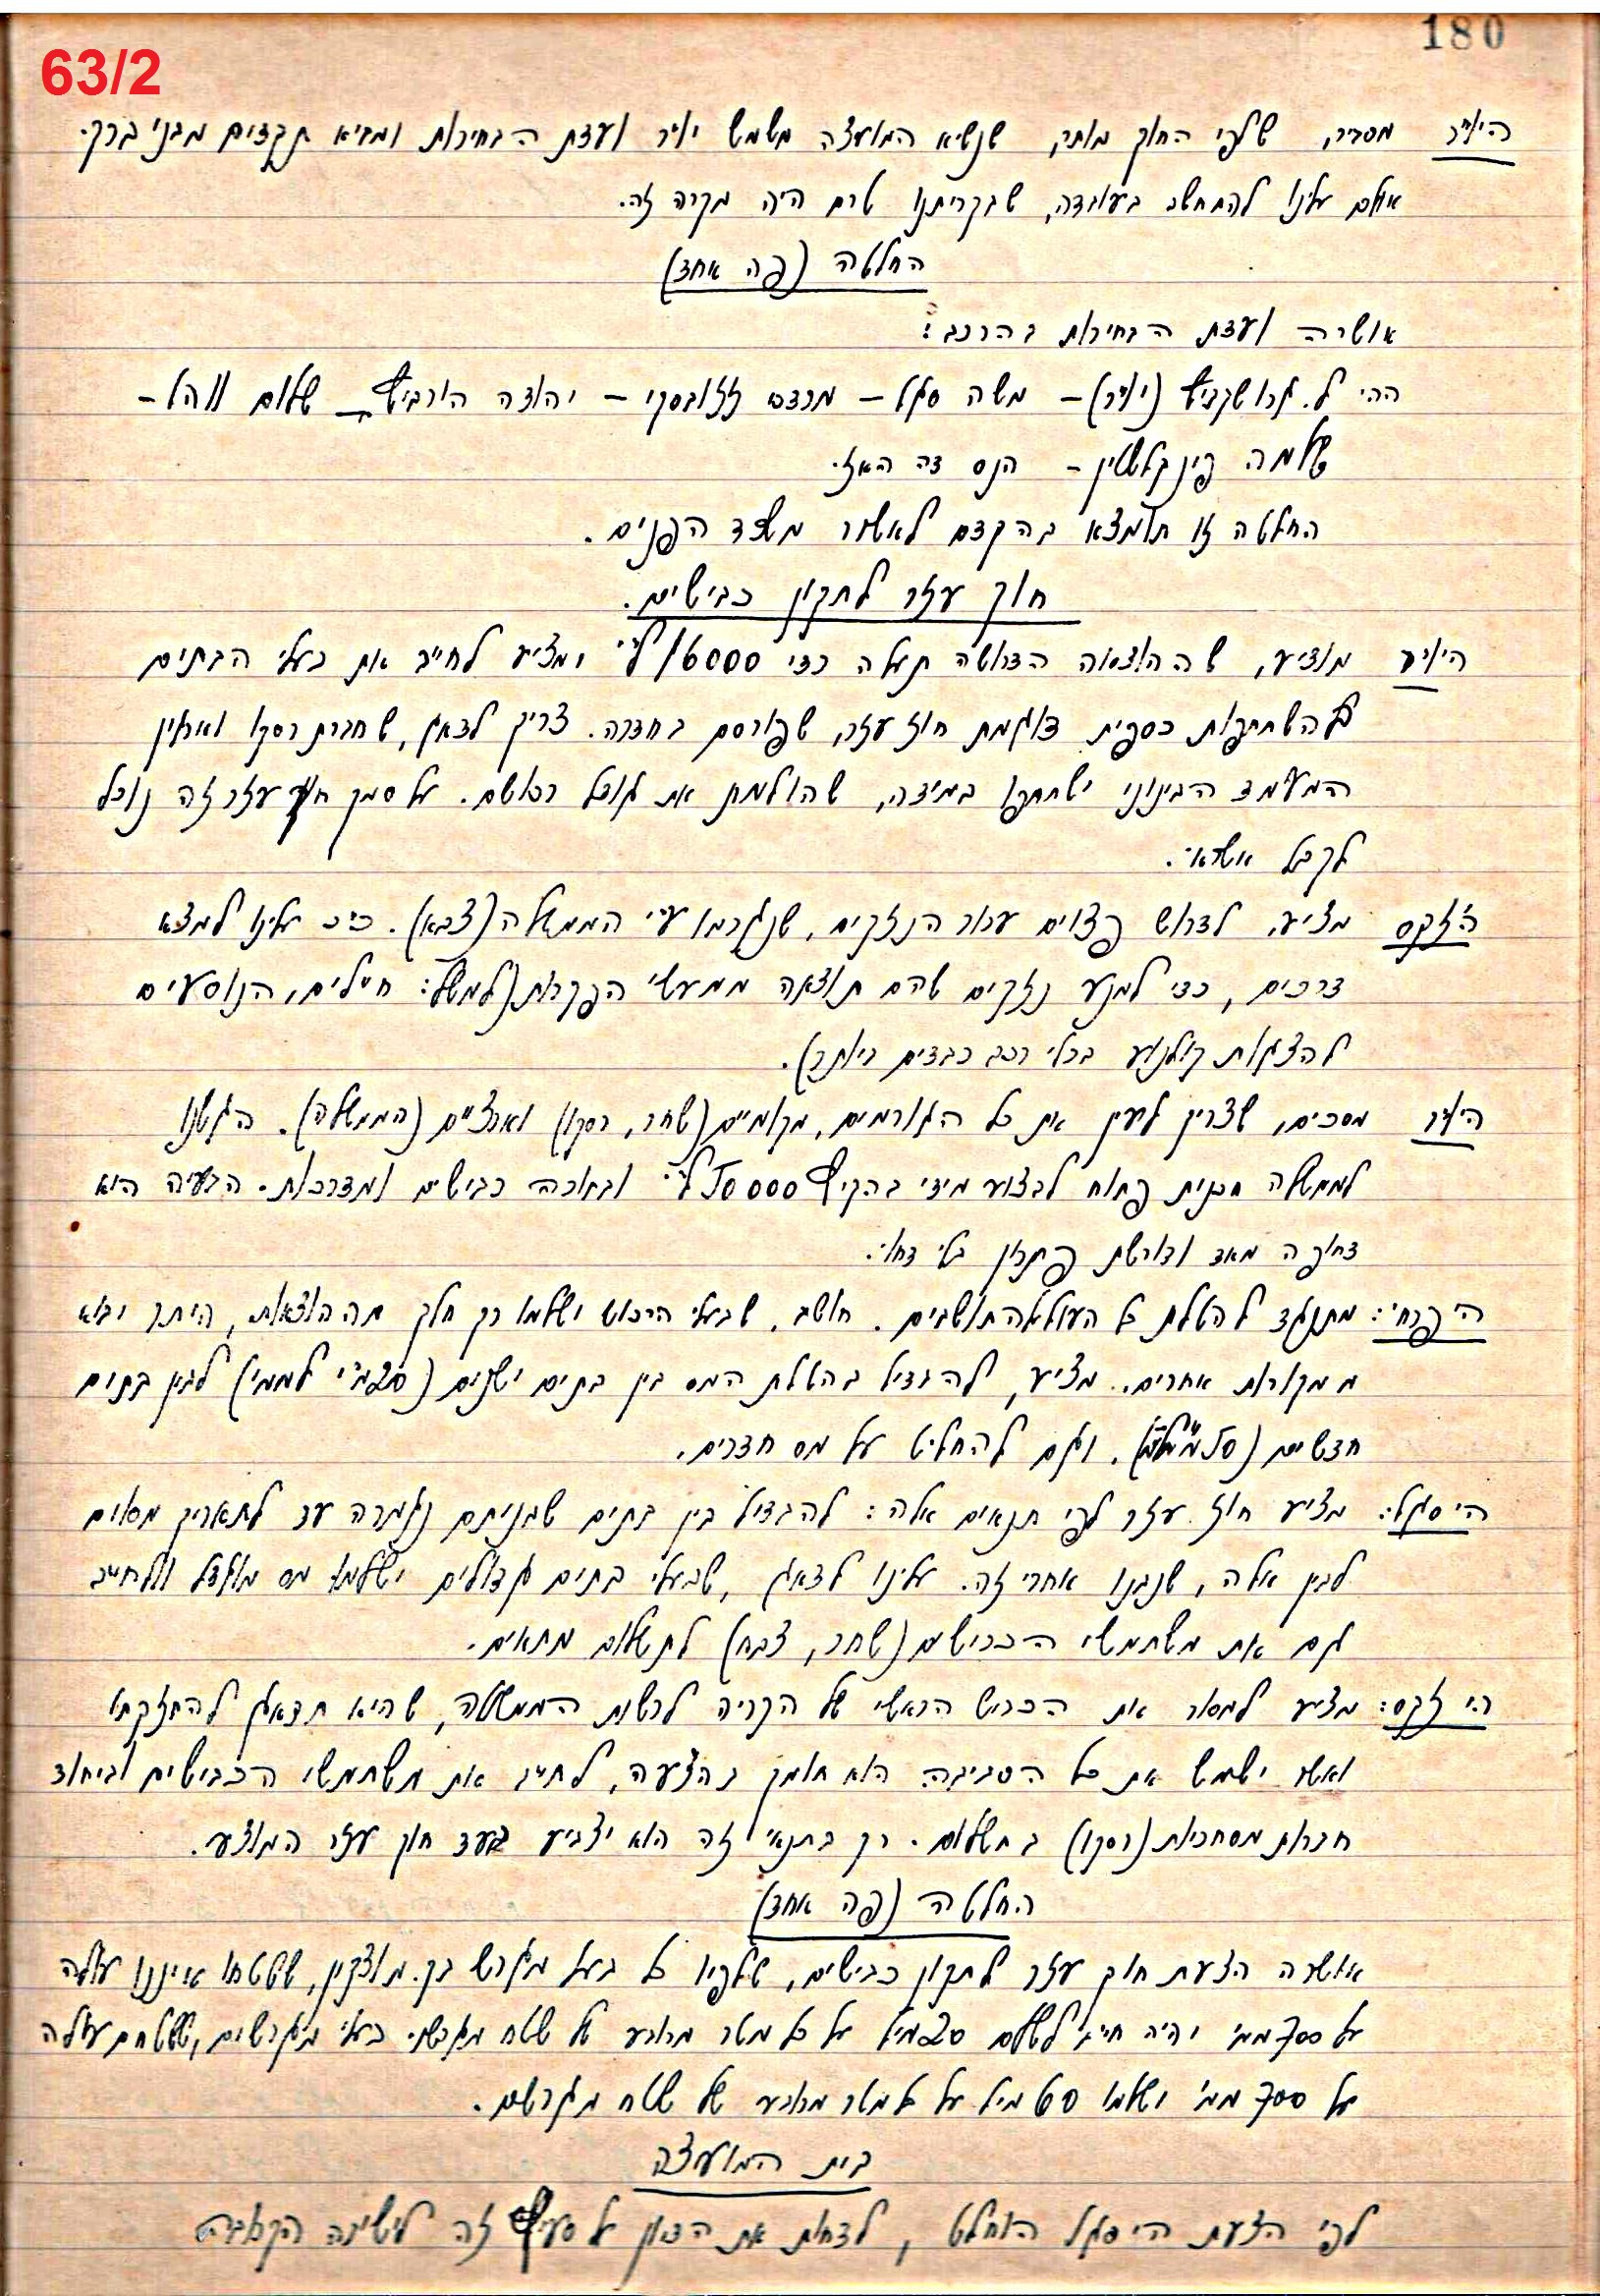 180
63/2
היו"ר מסביר, שלפי החוק מותר, שנשיא המועצה משמש יו"ר ועדת הבחירות ומביא תקדים מבני ברק.
אולם עלינו להתחשב בעובדה, שבקריתנו טרם היה מקרה זה.
החלטה (פה אחד)
אושרה ועדת הבחירות בהרכב:
ה"ה ל. גרושקביץ (יו"ר) – משה סגל – מרדכי – יהודה הורביץ – שלום –
שלמה פינקלשטין – הנס דה האז.
החלטה זו תומצא בהקדם לאשור משרד הפנים.
חוק עזר לתקון כבישים.
היו"ר מודיע, שההוצאה הדרושה תעלה כדי 16000 ל"י ומציע לחייב את בעלי הבתים
בהשתתפות כספית דוגמת חוק עזר, שפורסם בחדרה. צריך לדאוג, שחברת רסקו ואירגון
המעמד הבינוני ישתתפו במידה, שהולמת את גודל רכושם. על סמך חוק עזר זה נוכל
לקבל אשראי.
ה' זקס מציע, לדרוש פצוים עבור הנזקים, שנגרמו ע"י הממשלה (צבא). כ"כ עלינו למצא
דרכים, כדי למנע נזקים שהם תוצאה ממעשי הפקרות (למשל: חיילים, הנוסעים
להצגות קולנוע בכלי רכב כבדים ביותר).
היו"ר מסכים, שצריך לציין את כל הגורמים, מקומיים (שחר, רסקו) וארציים (הממשלה). הגשנו
לממשלה תכנית פתוח לבצוע מידי בהקיף 50000 ל"י ובתוכה כבישים ומדרכות. הבעיה היא
דחופה מאד ודורשת פתרון בלי דחוי.
ה' פרחי: מתנגד להטלת כל העול על התושבים. חושב, שבעלי הרכוש ישלמו רק חלק מההוצאות, היתר יבוא
ממקורות אחרים. מציע, להבדיל בהטלת המס בין בתים ישנים (20 מ' לממ"ר) לבין בתים
חדשים (50 מיל). וגם להחליט על מס חדרים.
ה' סגל: מציע חוק עזר לפי תנאים אלה: להבדיל בין בתים שבניתם נגמרה עד לתאריך מסוים
לבין אלה, שנבנו אחרי זה. עלינו לדאוג, שבעלי בתים גדולים ישלמו מס מוגדל ולחייב
גם את משתמשי הכבישים (שחר, צבא) לתשלום מתאים.
ה' זקס: מציע למסור את הכביש הראשי של הקריה לרשות הממשלה, שהיא תדאג להחזקתו
ואשר ישמש את כל הסביבה. הוא תומך בהצעה, לחייב את משתמשי הכבישים וביחוד
חברות מסחריות (רסקו) בתשלום. רק בתנאי זה הוא יצביע בעד חוק עזר המוצע.
החלטה (פה אחד)
אושרה הצעת חוק עזר לתקון כבישים, שלפיו כל בעל מגרש בק. מוצקין, ששטחו איננו עולה
על 700 ממ' יהיה חייב לשלם 20 מיל על כל מטר מרובע של שטח מגרשו. בעלי מגרשים, ששטחם עולה
על 700 ממ' ישלמו 60 מיל על כל מטר מרובע של שטח מגרשם.
בית המועצה
לפי הצעת ה' סגל הוחלט, לדחות את הדיון על סעיף זה לישיבה הקרובה